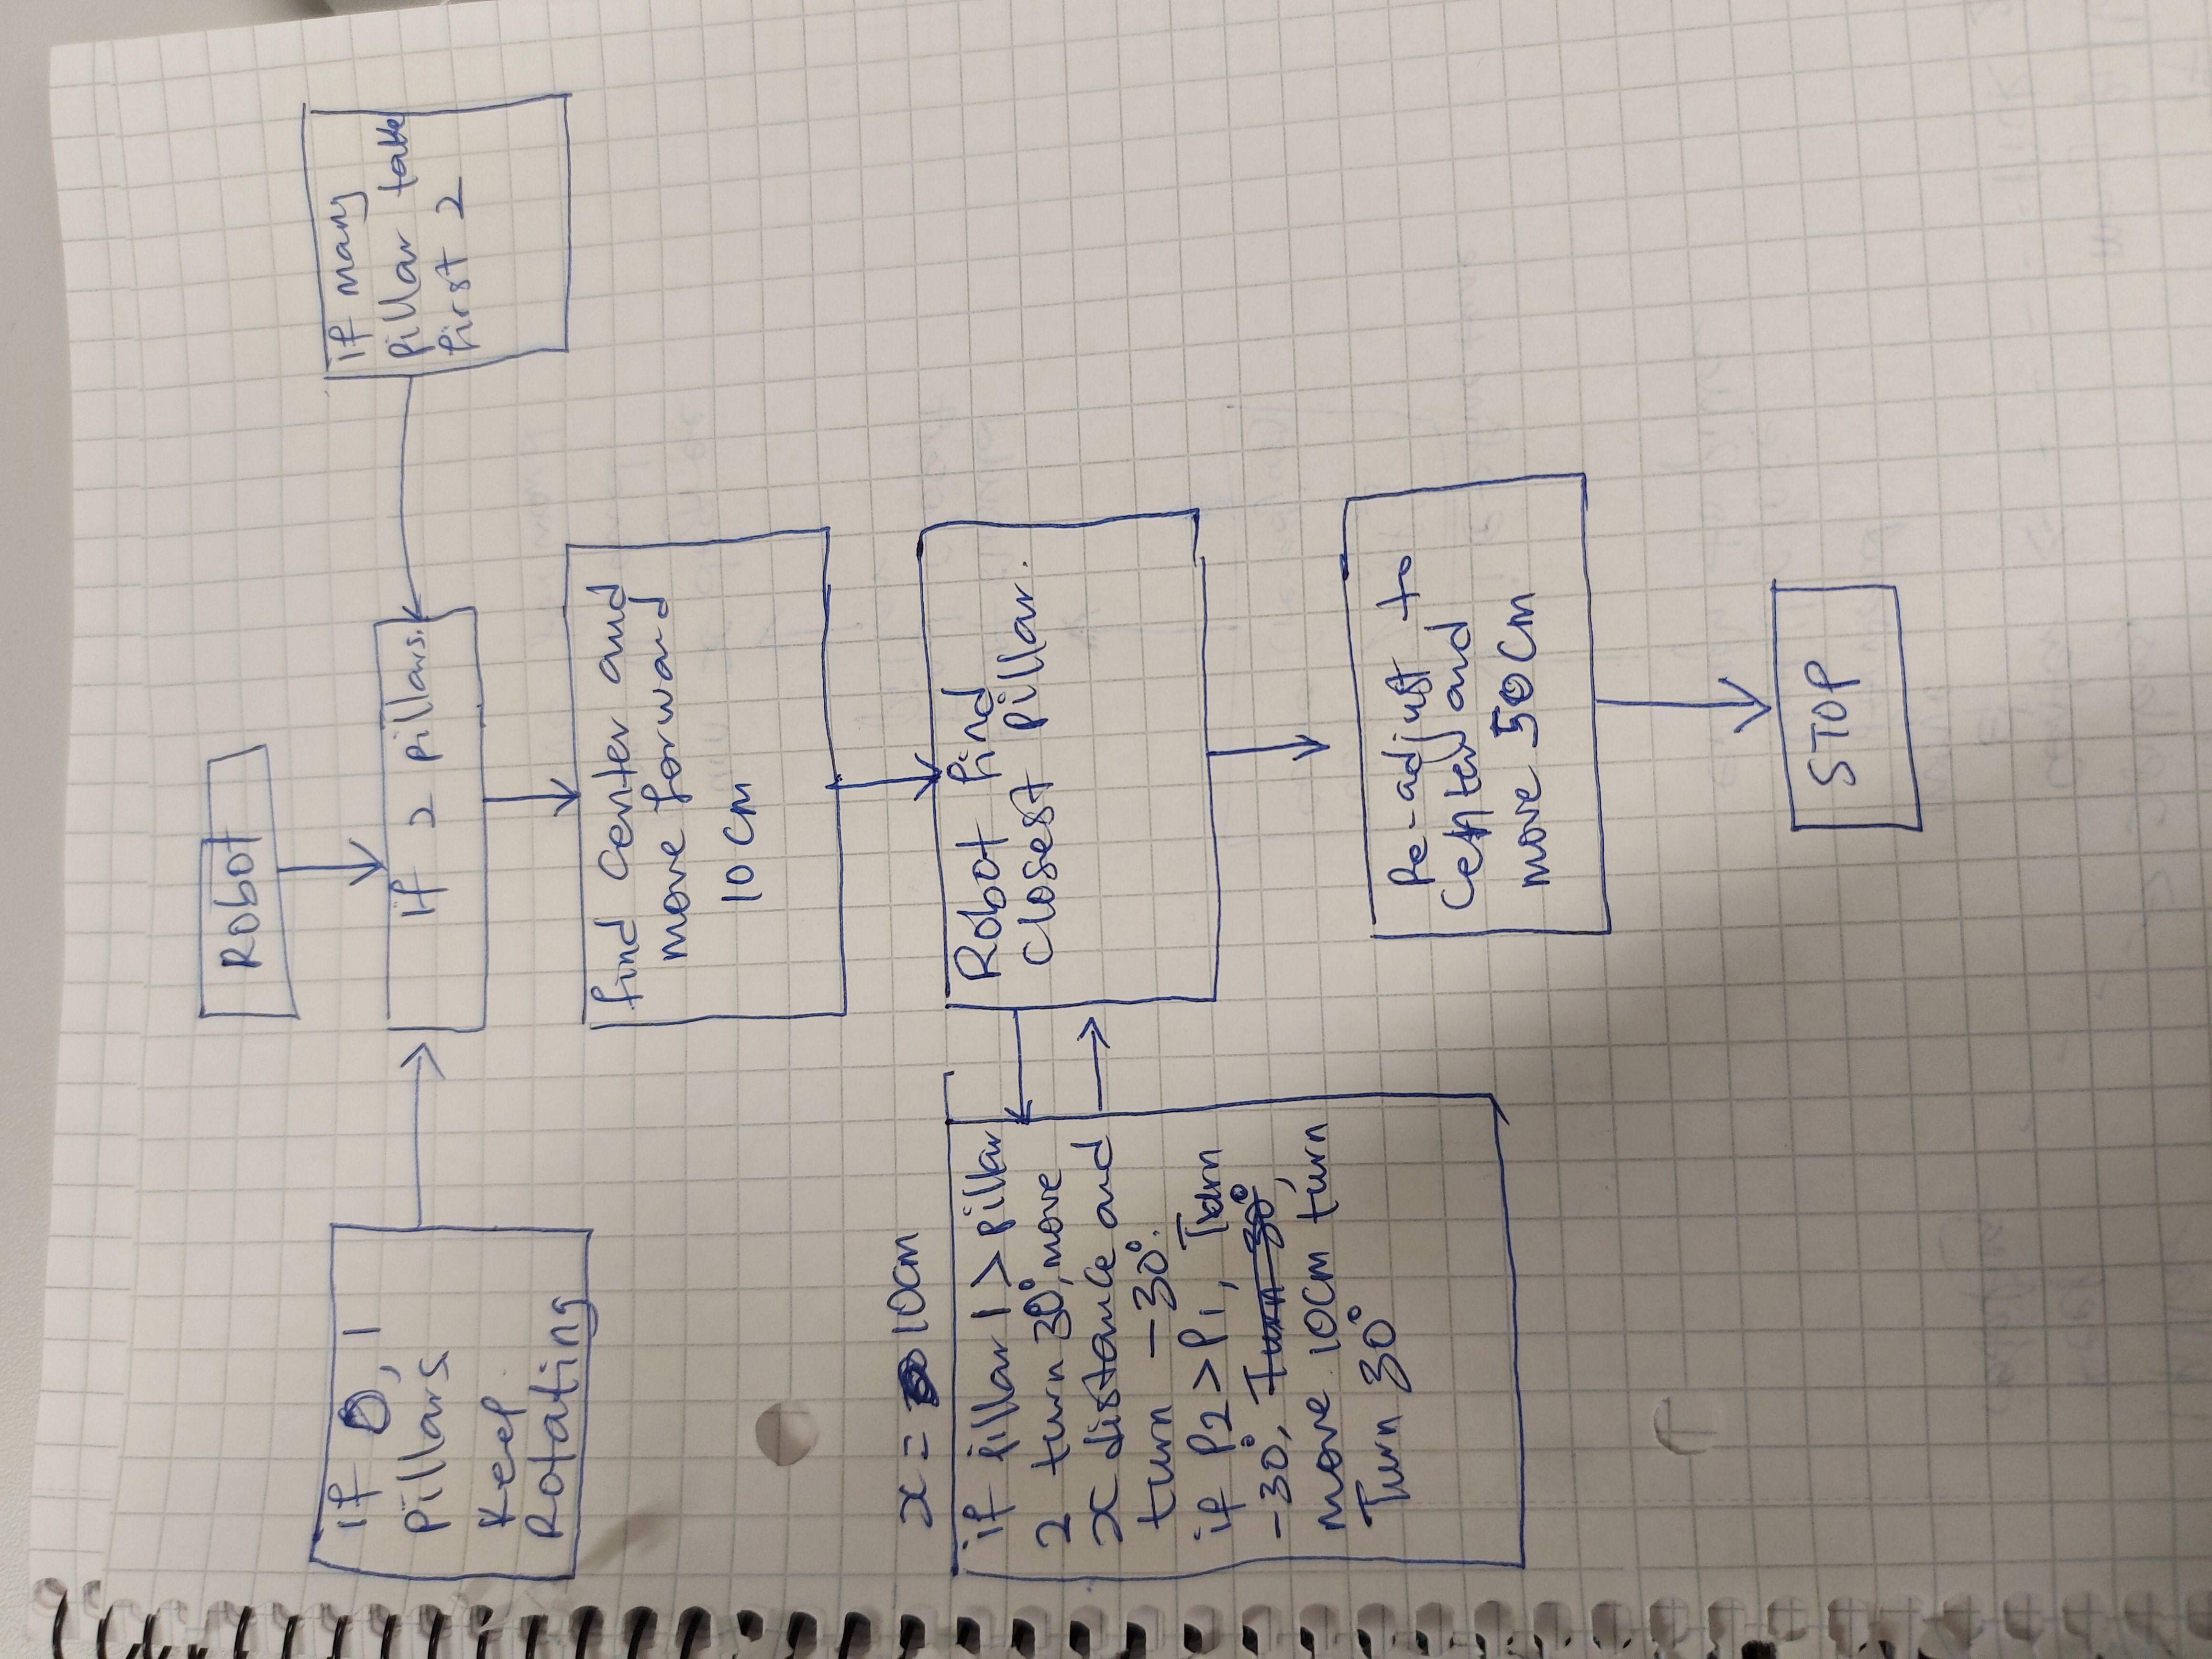 Robot
if 0, 1
pillars
keep
Rotating
If 2 pillars.
if many
pillar take
first 2
find center and
move forward
10 cm
x = 10cm
if pillar 1 > pillar
2 turn 30°, move
x distance and
turn -30°.
if P2 > P1, Turn
-30°, Turn 30°,
move 10cm turn
Turn 30°
Robot find
closest pillar.
Re-adjust to
Center and
move 50 cm
STOP